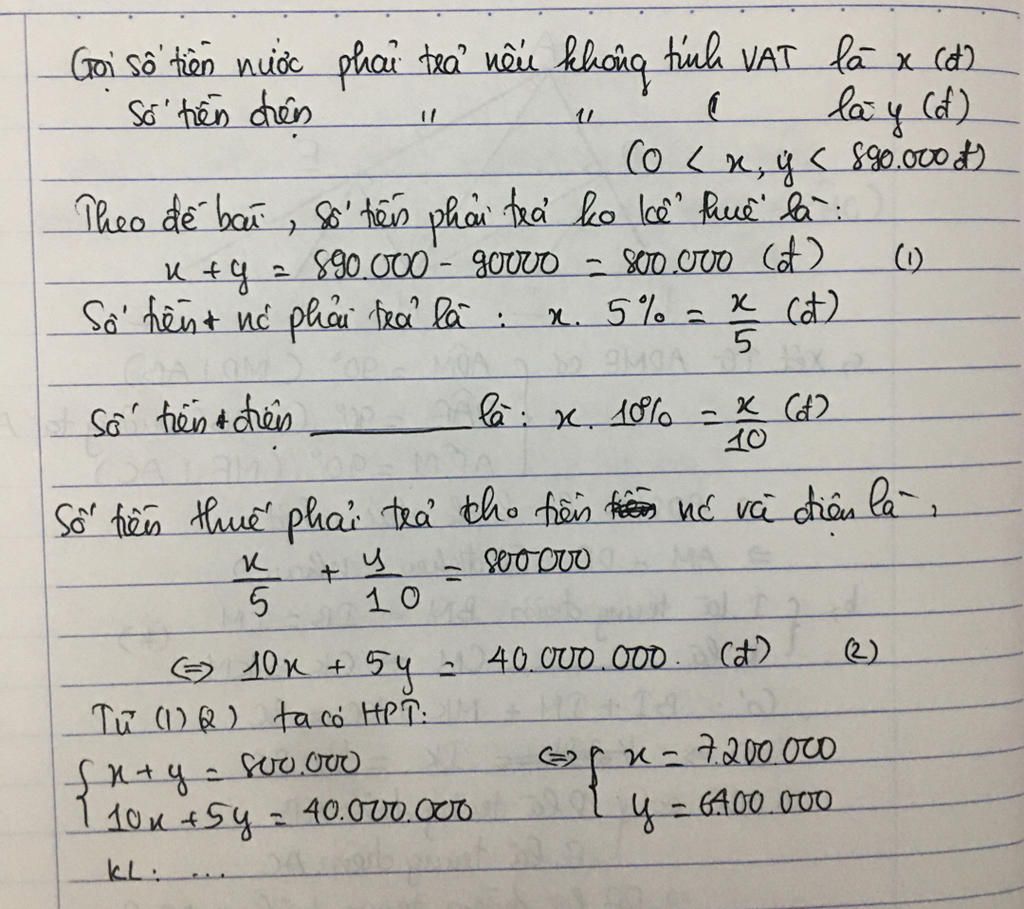 Gọi số tiền nước phải trả nếu không tính VAT là x (đ)
Số tiền điện " " ( là y (đ)
(0 < x, y < 890.000 đ)
Theo đề bài, số tiền phải trả ko kể thuế là:
x + y = 890.000 - 90000 = 800.000 (đ) (1)
Số tiền + nc phải trả là : x. 5% = x/5 (đ)
Số tiền + điện ______ là : x. 10% = x/10 (đ)
Số tiền thuế phải trả cho tiền nc và điện là,
x/5 + y/10 = 800000
<=> 10x + 5y = 40.000.000. (đ) (2)
Từ (1) (2) ta có HPT:
{ x + y = 800.000 <=> { x = 7.200.000
{ 10x + 5y = 40.000.000 { y = 6400.000
KL: ...